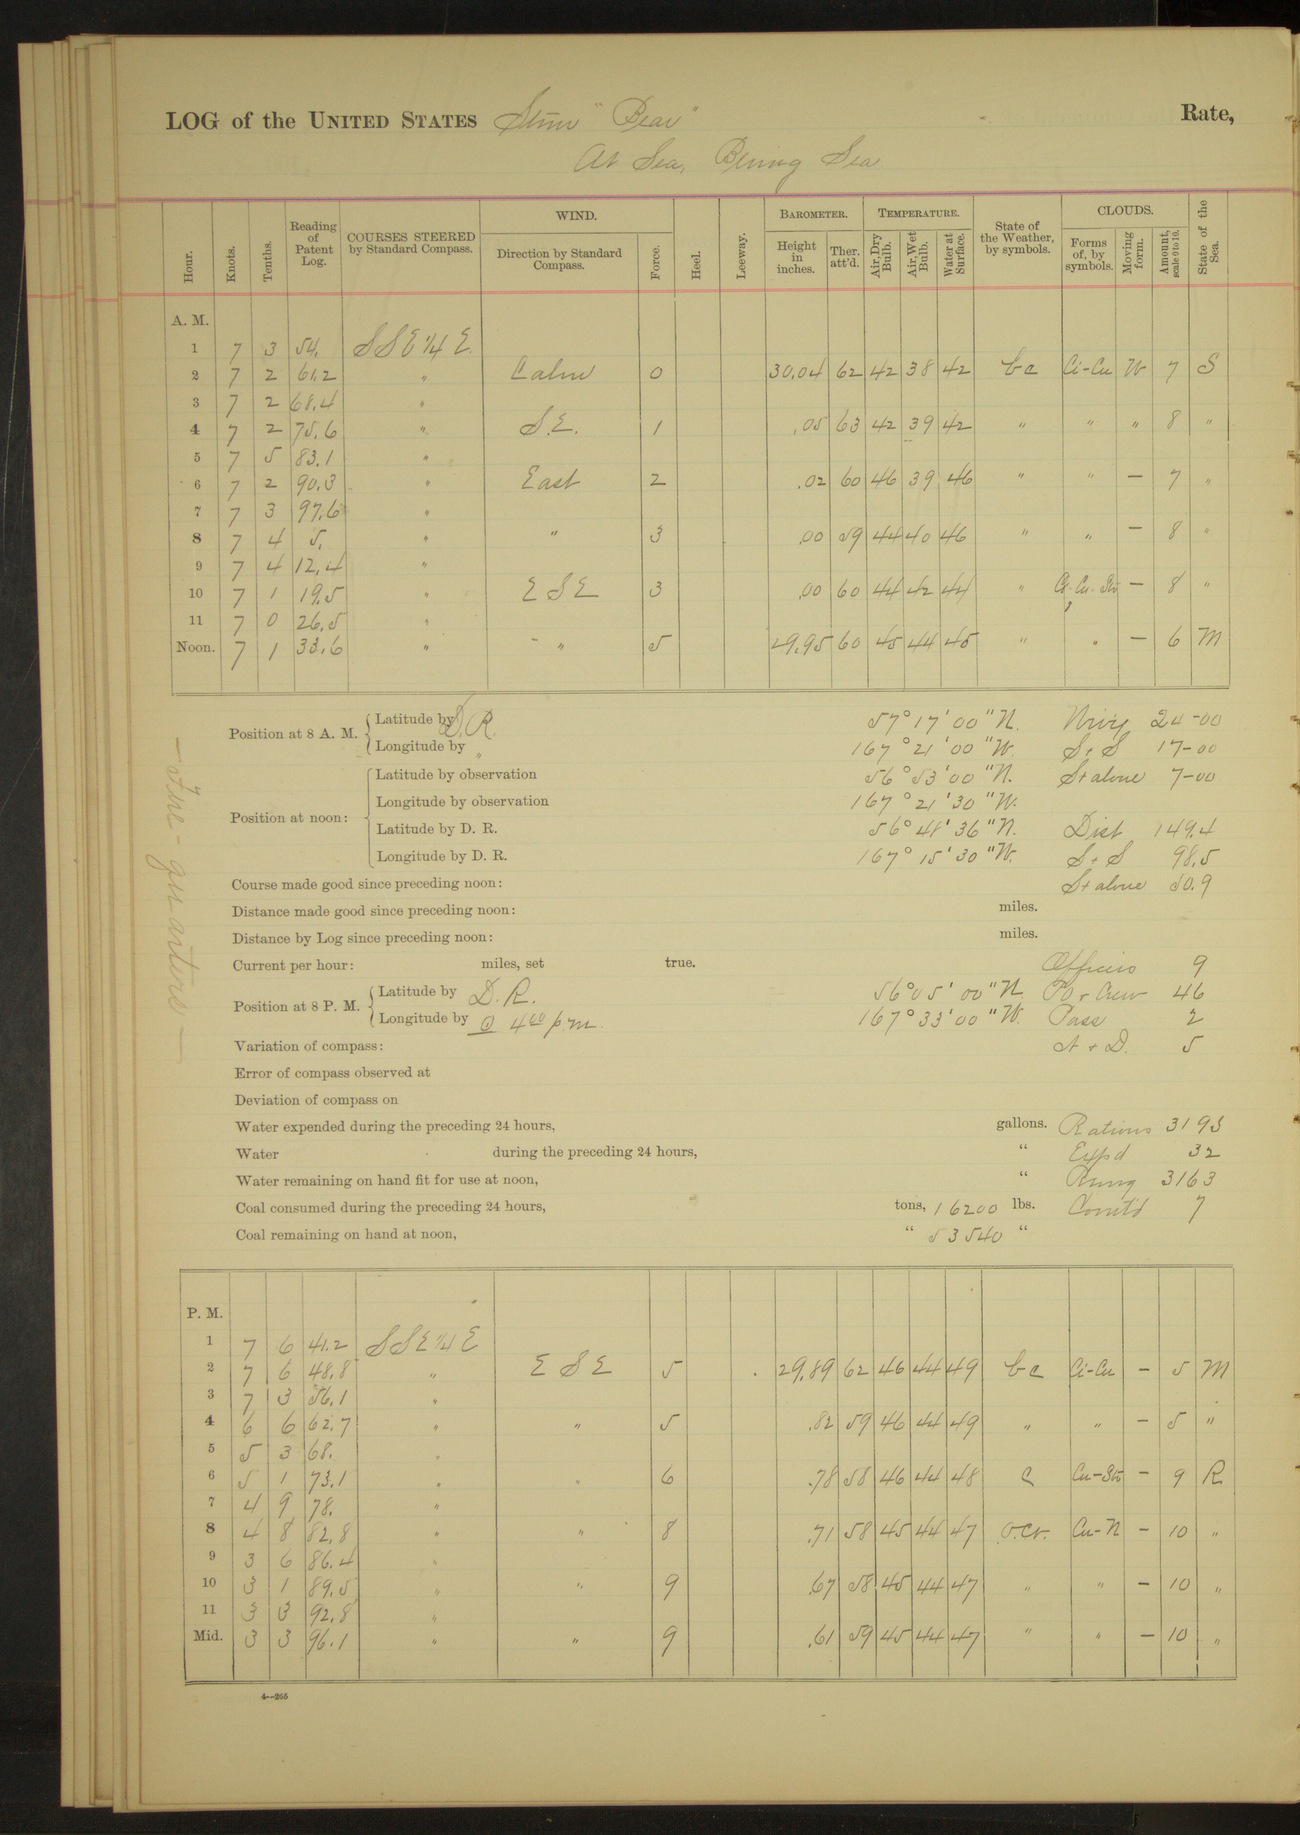 LOG of the UNITED STATES Stmr "Bear" Rate,
At Sea, Bering Sea
Hour. Knots. Tenths. Reading of Patent Log. COURSES STEERED by Standard Compass. WIND. Direction by Standard Compass. Force. Heel. Leeway. BAROMETER. Height in inches. Ther. att'd. TEMPERATURE. Air, Dry Bulb. Air, Wet Bulb. Water at Surface. State of the Weather, by symbols. CLOUDS. Forms of, by symbols. Moving form. Amount, scale 0 to 10. State of the Sea.
A. M.
1 7 3 54. SSE 1/4 E.
2 7 2 61.2 " Calm 0 30.04 62 42 38 42 bc Ci-Cu W 7 S
3 7 2 68.4 "
4 7 2 75.6 " S.E. 1 .05 63 42 39 42 " " " 8 "
5 7 5 83.1 "
6 7 2 90.3 " East 2 .02 60 46 39 46 " " — 7 "
7 7 3 97.6 "
8 7 4 5. " " 3 .00 59 44 40 46 " " — 8 "
9 7 4 12.4 "
10 7 1 19.5 " ESE 3 .00 60 44 42 44 " Ci-Cu-Str — 8 "
11 7 0 26.5 "
Noon. 7 1 33.6 " " 5 29.95 60 45 44 45 " " — 6 M
Position at 8 A. M. Latitude by D.R. 57° 17' 00" N. 24-00
Longitude by " 167° 21' 00" W. S+S 17-00
Position at noon: Latitude by observation 56° 53' 00" N. S+alone 7-00
Longitude by observation 167° 21' 30" W.
Latitude by D. R. 56° 48' 36" N. Dist 149.4
Longitude by D. R. 167° 15' 30" W. S+S 98.5
Course made good since preceding noon: S+alone 50.9
Distance made good since preceding noon: miles.
Distance by Log since preceding noon: miles.
Current per hour: miles, set true. Officers 9
Position at 8 P. M. Latitude by D. R. 56° 05' 00" N. PO + Crew 46
Longitude by @ 4 00 p.m. 167° 33' 00" W. Pass 2
Variation of compass: A + D. 5
Error of compass observed at
Deviation of compass on
Water expended during the preceding 24 hours, gallons. Rations 3195
Water during the preceding 24 hours, " Expd 32
Water remaining on hand fit for use at noon, " Rmng 3163
Coal consumed during the preceding 24 hours, tons, 16200 lbs. Com'td 7
Coal remaining on hand at noon, " 53540 "
— Fire-quarters —
P. M.
1 7 6 41.2 SSE 1/4 E
2 7 6 48.8 " ESE 5 29.89 62 46 44 49 bc Ci-Cu — 5 M
3 7 3 56.1 "
4 6 6 62.7 " " 5 .82 59 46 44 49 " " — 5 "
5 5 3 68. "
6 5 1 73.1 " " 6 .78 58 46 44 48 c Cu-Str — 9 R
7 4 9 78. "
8 4 8 82.8 " " 8 .71 58 45 44 47 Cu-N — 10 "
9 3 6 86.4 "
10 3 1 89.5 " " 9 .67 58 45 44 47 " " — 10 "
11 3 3 92.8 "
Mid. 3 3 96.1 " " 9 .61 59 45 44 47 " " — 10 "
4—265